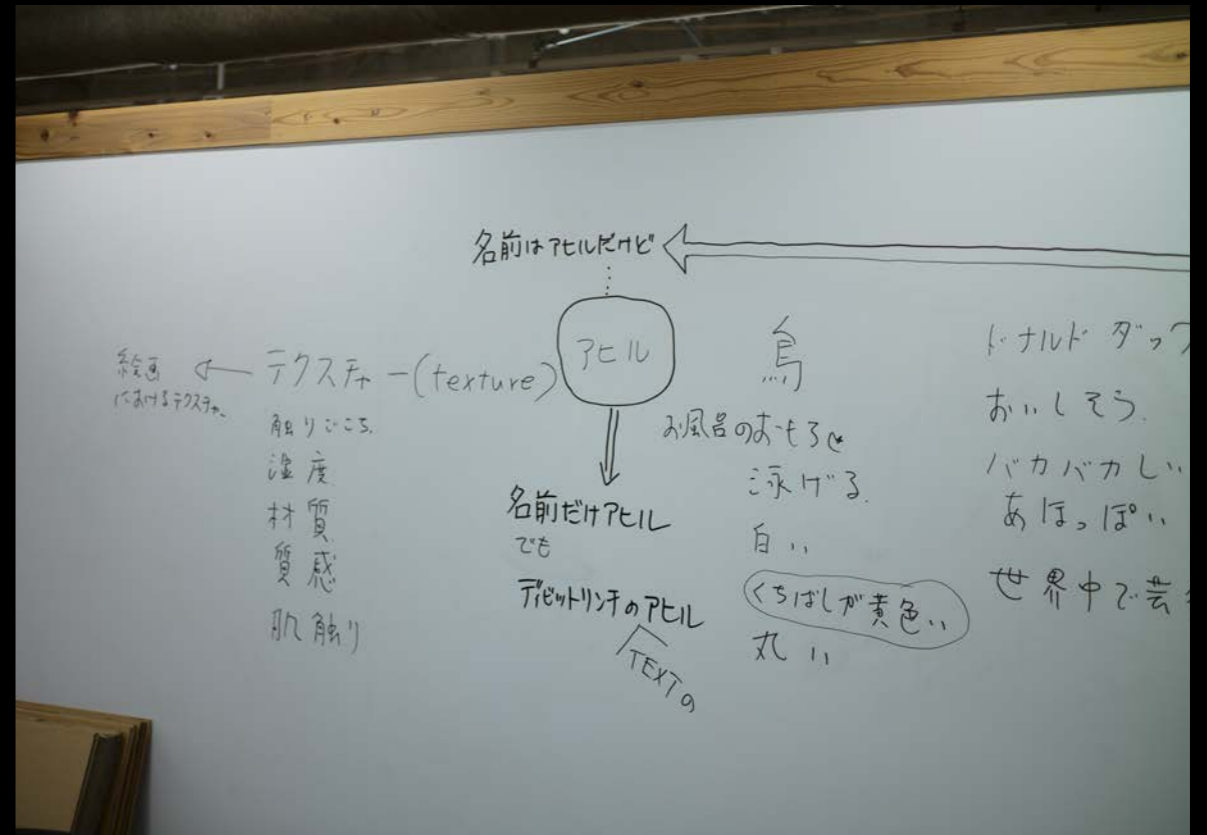 名前はアヒルだけど
アヒル
テクスチャー(texture)
絵画
におけるテクスチャ
触りごこち
湿度
材質
質感
肌触り
名前だけアヒル
でも
デイビットリンチのアヒル
TEXTの
鳥
お風呂のおもちゃ
泳げる
白い
くちばしが黄色い
丸い
ドナルドダック
おいしそう
バカバカしい
あほっぽい
世界中で芸